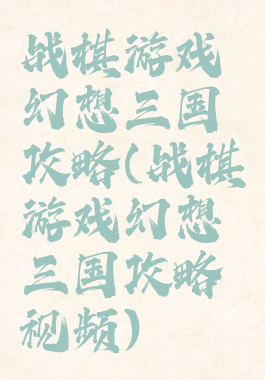 战棋游戏
幻想三国
攻略(战棋
游戏幻想
三国攻略
视频)